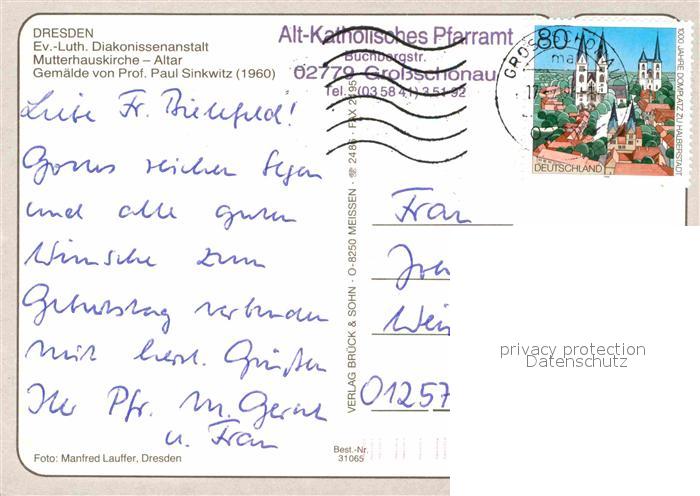 DRESDEN
Ev.-Luth. Diakonissenanstalt
Mutterhauskirche – Altar
Gemälde von Prof. Paul Sinkwitz (1960)
Alt-Katholisches Pfarramt
Buchbergstr.
02779 Großschönau
Tel. (03 58 41) 3 51 92
80
1000 JAHRE DOMPLATZ ZU HALBERSTADT
DEUTSCHLAND
Liebe Fr. Bielefeld!
Gottes reichen Segen
und alle guten
Wünsche zum
Geburtstag verbunden
mit herzl. Grüßen
Ihr Pfr. M. Gerat
u. Frau
VERLAG BRÜCK & SOHN · O-8250 MEISSEN · ☏ 2486 · FAX 2495
Frau
Joh
Wei
01257
privacy protection
Datenschutz
Foto: Manfred Lauffer, Dresden
Best.-Nr.
31065